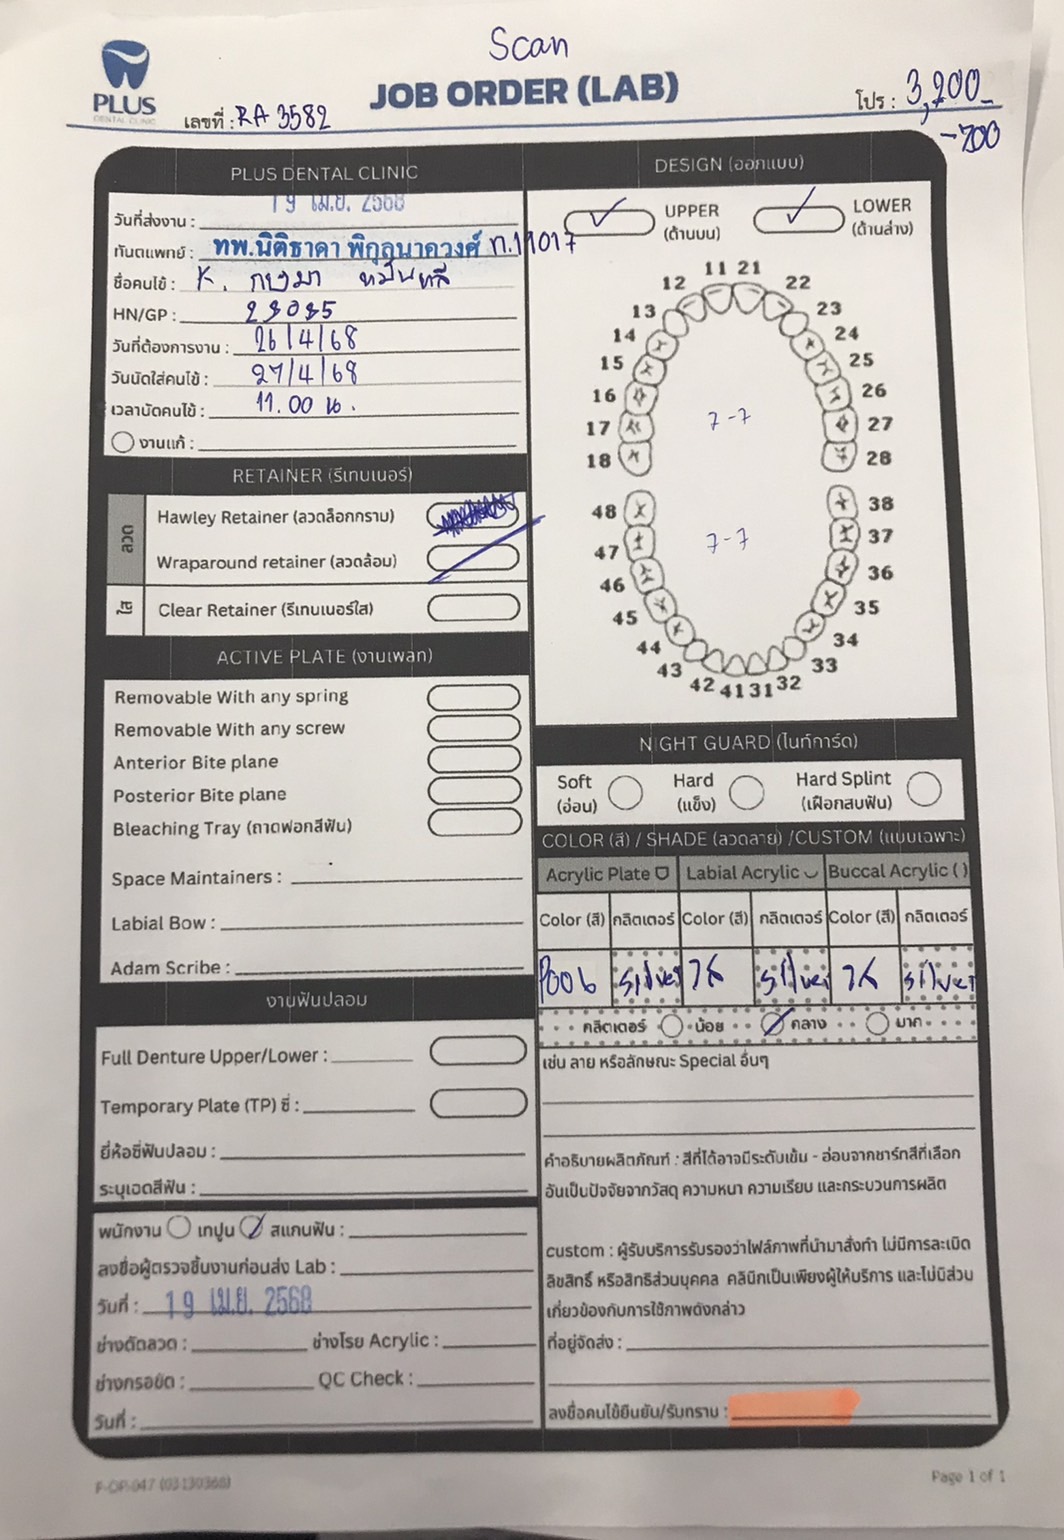 Scan
PLUS
DENTAL CLINIC
JOB ORDER (LAB)
เลขที่ : RA 3582
โปร : 3,200_
-700
PLUS DENTAL CLINIC
วันที่ส่งงาน : 19 เม.ย. 2568
ทันตแพทย์ : ทพ.นิติธาดา พิกุลนาควงศ์ ท.11017
ชื่อคนไข้ : K. กษมา
HN/GP :
วันที่ต้องการงาน : 26/4/68
วันนัดใส่คนไข้ : 27/4/68
เวลานัดคนไข้ : 11.00 น.
งานแก้ :
RETAINER (รีเทนเนอร์)
ลวด
Hawley Retainer (ลวดล็อกกราม)
Wraparound retainer (ลวดล้อม)
ใส
Clear Retainer (รีเทนเนอร์ใส)
ACTIVE PLATE (งานเพลท)
Removable With any spring
Removable With any screw
Anterior Bite plane
Posterior Bite plane
Bleaching Tray (ถาดฟอกสีฟัน)
Space Maintainers :
Labial Bow :
Adam Scribe :
งานฟันปลอม
Full Denture Upper/Lower :
Temporary Plate (TP) ซี่ :
ยี่ห้อซี่ฟันปลอม :
ระบุเฉดสีฟัน :
พนักงาน เทปูน สแกนฟัน :
ลงชื่อผู้ตรวจชิ้นงานก่อนส่ง Lab :
วันที่ : 19 เม.ย. 2568
ช่างดัดลวด : ช่างโรย Acrylic :
ช่างกรอขัด : QC Check :
วันที่ :
DESIGN (ออกแบบ)
UPPER
(ด้านบน)
LOWER
(ด้านล่าง)
11 21
12 22
13 23
14 24
15 25
16 26
17 7-7 27
18 28
48 38
47 7-7 37
46 36
45 35
44 34
43 33
42 41 31 32
NIGHT GUARD (ไนท์การ์ด)
Soft
(อ่อน)
Hard
(แข็ง)
Hard Splint
(เฝือกสบฟัน)
COLOR (สี) / SHADE (ลวดลาย) /CUSTOM (แบบเฉพาะ)
Acrylic Plate Labial Acrylic Buccal Acrylic ( )
Color (สี) กลิตเตอร์ Color (สี) กลิตเตอร์ Color (สี) กลิตเตอร์
P006 silver silver silver
กลิตเตอร์ น้อย กลาง มาก
เช่น ลาย หรือลักษณะ Special อื่นๆ
คำอธิบายผลิตภัณฑ์ : สีที่ได้อาจมีระดับเข้ม - อ่อนจากชาร์ทสีที่เลือก
อันเป็นปัจจัยจากวัสดุ ความหนา ความเรียบ และกระบวนการผลิต
custom : ผู้รับบริการรับรองว่าไฟล์ภาพที่นำมาสั่งทำ ไม่มีการละเมิด
ลิขสิทธิ์ หรือสิทธิส่วนบุคคล คลินิกเป็นเพียงผู้ให้บริการ และไม่มีส่วน
เกี่ยวข้องกับการใช้ภาพดังกล่าว
ที่อยู่จัดส่ง :
ลงชื่อคนไข้ยืนยัน/รับทราบ :
Page 1 of 1